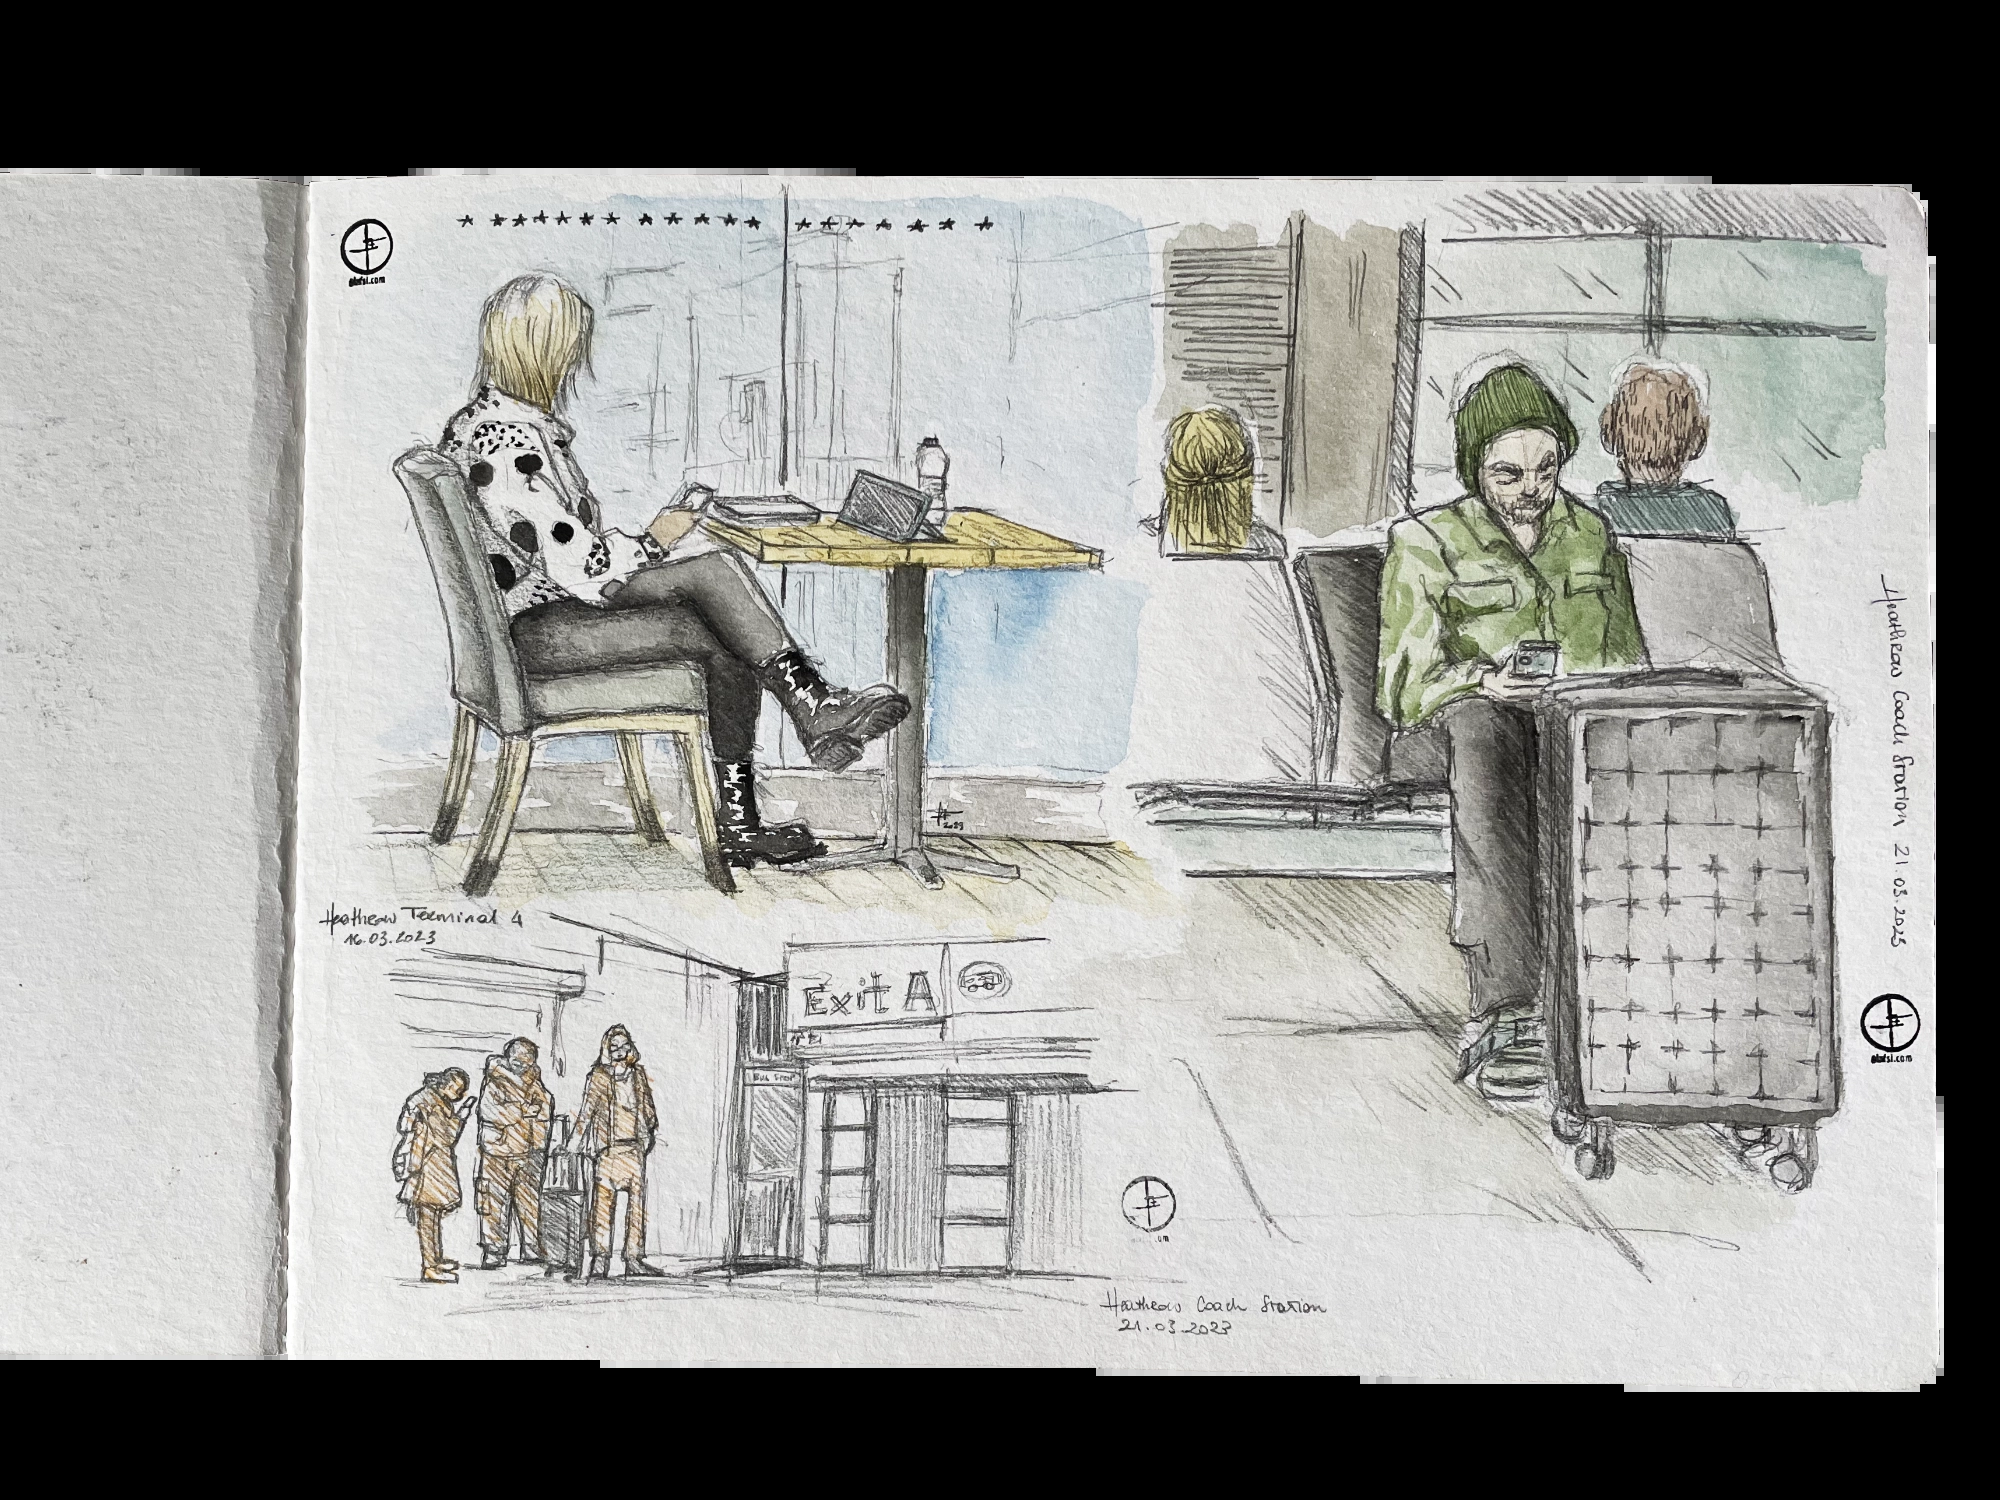 olafsl.com
Heathrow Terminal 4
16.03.2023
2023
Exit A
Bus Stop
Heathrow Coach Station
21.03.2023
Heathrow Coach Station 21.03.2023